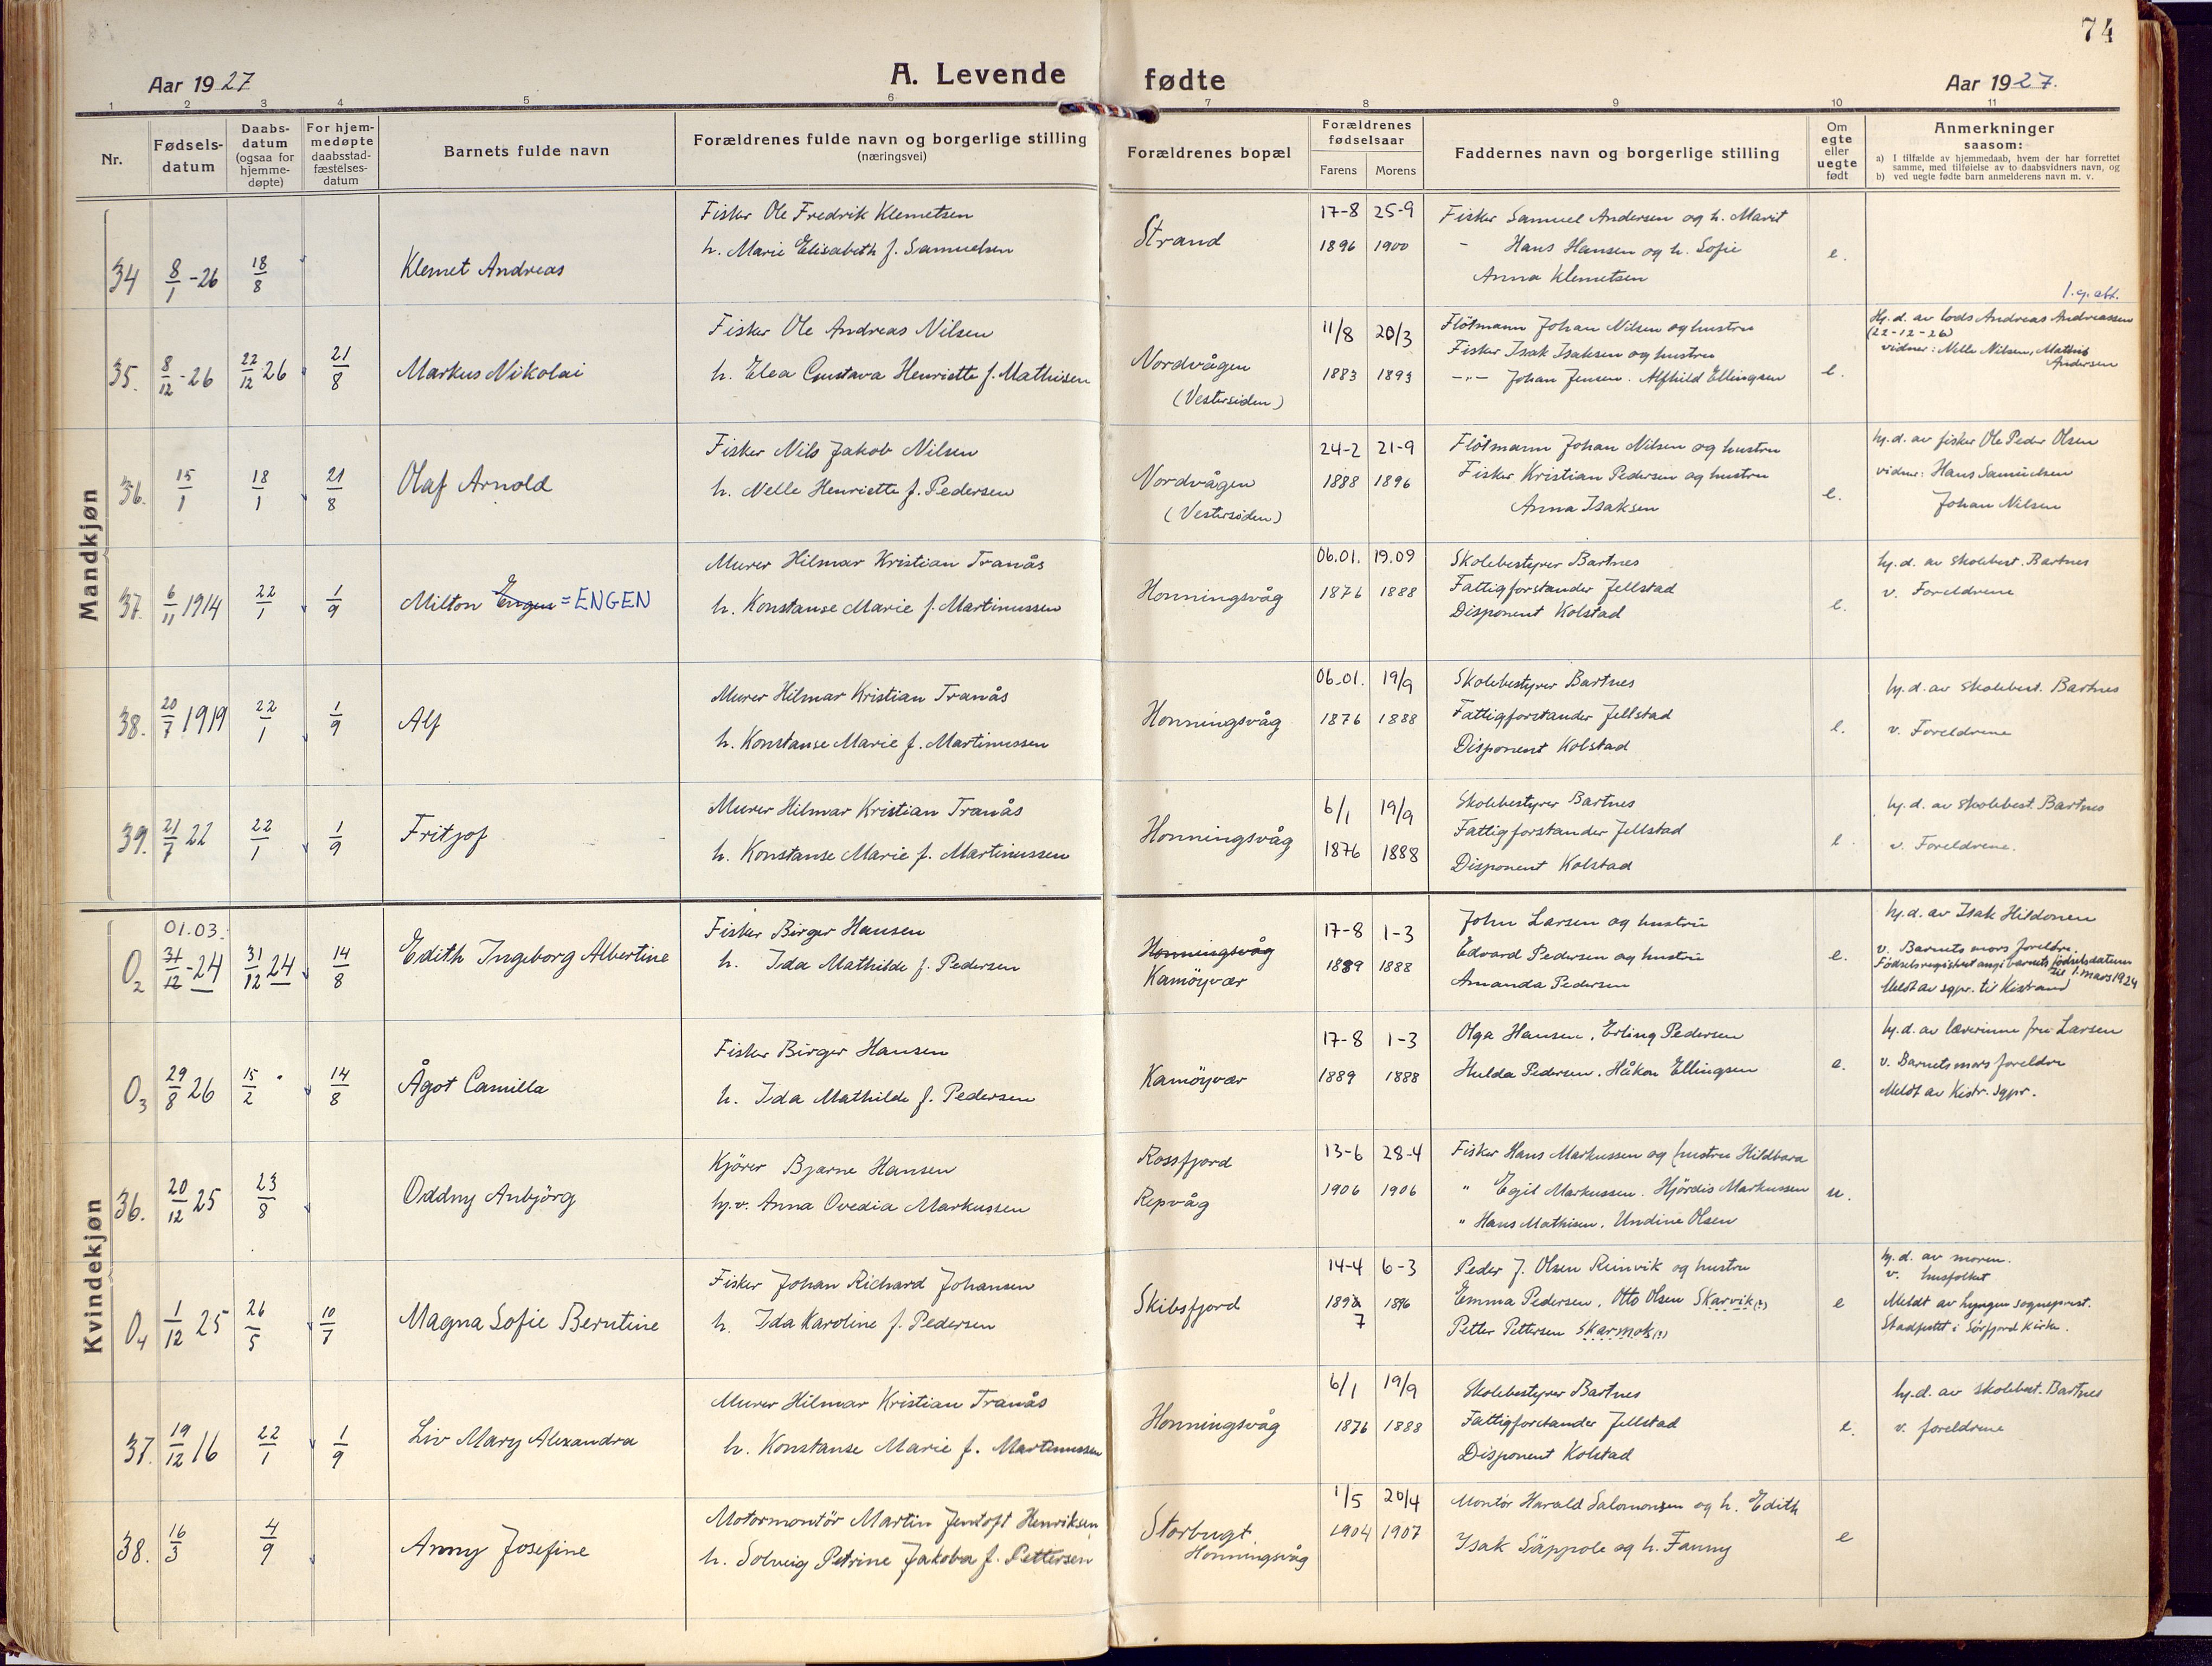 74
Aar 1927
A. Levende fødte
Aar 1927.
1 2 3 4 5 6 7 8 9 10 11
Nr.
Fødsels-
datum
Daabs-
datum
(ogsaa for
hjemme-
døpte)
For hjem-
medøpte
daabsstad-
fæstelses-
datum
Barnets fulde navn
Forældrenes fulde navn og borgerlige stilling
(næringsvei)
Forældrenes bopæl
Forældrenes
fødselsaar
Farens Morens
Faddernes navn og borgerlige stilling
Om
egte
eller
uegte
født
Anmerkninger
saasom:
a) I tilfælde av hjemmedaab, hvem der har forrettet
samme, med tilføielse av to daabsvidners navn, og
b) ved uegte fødte barn anmelderens navn m. v.
Mandkjøn
34 8/1-26 18/8
Klemet Andreas
Fisker Ole Fredrik Klemetsen
h. Marie Elisabeth f. Samuelsen
Strand
17-8 25-9
1896 1900
Fisker Samuel Andersen og h. Marit
- Hans Hansen og h. Sofie
Anna Klemetsen
e.
1.g. att.
35. 8/12-26 22/12 26 21/8
Markus Nikolai
Fisker Ole Andreas Nilsen
h. Elea Gustava Henriette f. Mathisen
Nordvågen
(Vestersiden)
11/8 20/3
1883 1893
Flötmann Johan Nilsen og hustru
Fisker Isak Isaksen og hustru
-"- Johan Jensen. Alfhild Ellingsen
e.
Hj. d. av lods Andreas Andreassen
(22-12-26)
vidner: Nella Nilsen, Mathis
Andersen
36. 15/1 18/1 21/8
Olaf Arnold
Fisker Nils Jakob Nilsen
h. Nelle Henriette f. Pedersen
Nordvågen
(Vestersiden)
24-2 21-9
1888 1896
Flötmann Johan Nilsen og hustru
Fisker Kristian Pedersen og hustru
Anna Isaksen
e.
hj. d. av fisker Ole Peder Olsen
vidner: Hans Samuelsen
Johan Nilsen
37. 6/11 1914 22/1 1/9
Milton Engen = ENGEN
Murer Hilmar Kristian Tranås
h. Konstanse Marie f. Martinussen
Honningsvåg
06.01. 19.09
1876 1888
Skolebestyrer Bartnes
Fattigforstander Jellstad
Disponent Kolstad
e.
hj. d. av skolebest. Bartnes
v. Foreldrene
38. 20/7 1919 22/1 1/9
Alf
Murer Hilmar Kristian Tranås
h. Konstanse Marie f. Martinussen
Honningsvåg
06.01. 19/9
1876 1888
Skolebestyrer Bartnes
Fattigforstander Jellstad
Disponent Kolstad
e.
hj. d. av skolebest. Bartnes
v. Foreldrene
39. 21/7 22 22/1 1/9
Fritjof
Murer Hilmar Kristian Tranås
h. Konstanse Marie f. Martinussen
Honningsvåg
6/1 19/9
1876 1888
Skolebestyrer Bartnes
Fattigforstander Jellstad
Disponent Kolstad
e.
hj. d. av skolebest. Bartnes
v. Foreldrene.
Kvindekjøn
01.03.
O2 31/12-24 31/12 24 14/8
Edith Ingeborg Albertine
Fisker Birger Hansen
h. Ida Mathilde f. Pedersen
Honningsvåg
Kamöyvær
17-8 1-3
1889 1888
John Larsen og hustru
Edvard Pedersen og hustru
Amanda Pedersen
e.
hj. d. av Isak Hildonen
v. Barnets mors foreldre.
Födselsregistret angi barnets födselsdatum
til 1. mars 1924
Meldt av sgpr. til Kistrand
O3 29/8 26 15/2 14/8
Ågot Camilla
Fisker Birger Hansen
h. Ida Mathilde f. Pedersen
Kamöyvær
17-8 1-3
1889 1888
Olga Hansen, Erling Pedersen
Hulda Pedersen. Håkon Ellingsen
e.
hj. d. av lærerinne fru Larsen
v. Barnets mors foreldre
Meldt av Kistr. sgpr.
36. 20/12 25 23/8
Oddny Anbjörg
Kjörer Bjarne Hansen
hj.v. Anna Ovedia Markussen
Rossfjord
Repvåg
13-6 28-4
1906 1906
Fisker Hans Markussen og hustru Hildbora
" Egil Markussen. Hjördis Markussen
" Hans Mathisen. Undine Olsen
u.
O4 1/12 25 26/5 10/7
Magna Sofie Berntine
Fisker Johan Richard Johansen
h. Ida Karoline f. Pedersen
Skibsfjord
14-4 6-3
1892 1896
7
Peder J. Olsen Reinvik og hustru
Emma Pedersen, Otto Olsen Skarvik(?)
Petter Pettersen Skarmok(?)
e
hj. d. av moren.
v. husfolket
Meldt av Lyngen sogneprest.
Stadfestet i Sörfjord Kirke.
37. 19/12 16 22/1 1/9
Liv Mary Alexandra
Murer Hilmar Kristian Tranås
h. Konstanse Marie f. Martinussen
Honningsvåg
6/1 19/9
1876 1888
Skolebestyrer Bartnes
Fattigforstander Jellstad
Disponent Kolstad
e.
hj. d. av skolebest. Bartnes
v. foreldrene
38. 16/3 4/9
Anny Josefine
Motormontör Martin Jentoft Henriksen,
h. Solveig Petrine Jakoba f. Pettersen
Storbugt
Honningsvåg
1/5 20/4
1904 1907
Montör Harald Salomonsen og h. Edith
Isak Säppole og h. Fanny
e